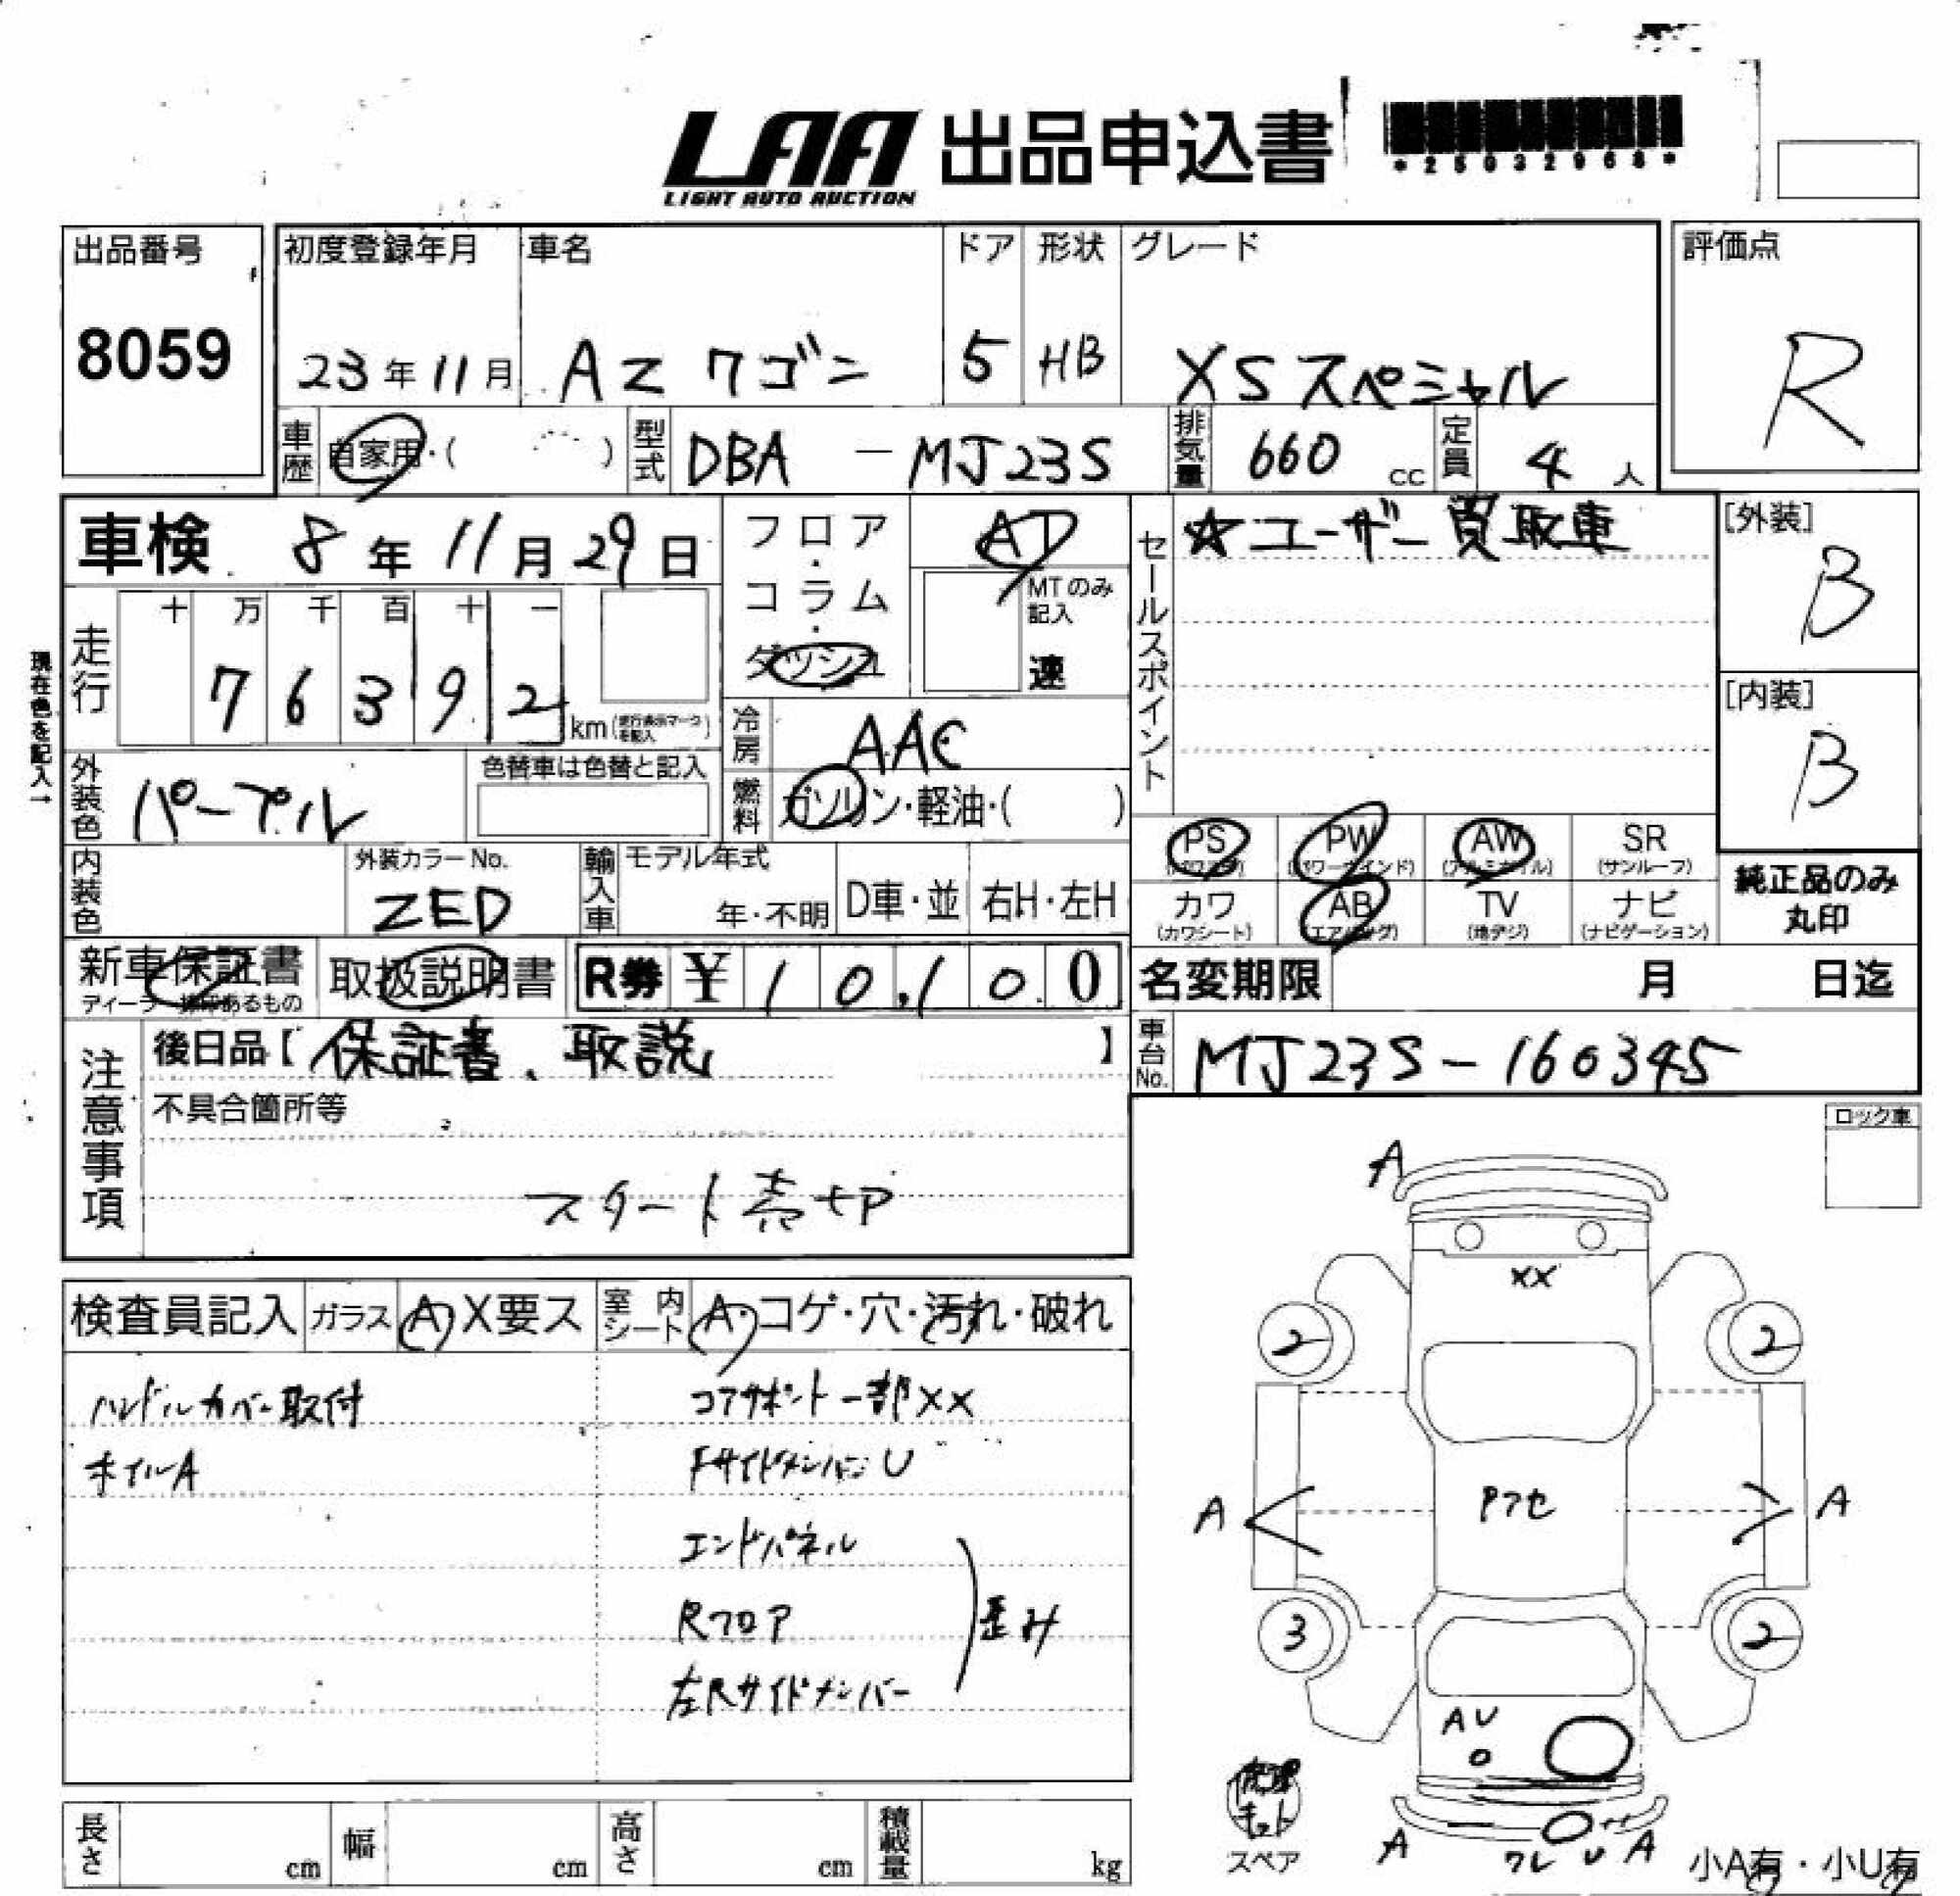 LAA 出品申込書
LIGHT AUTO AUCTION
*25032968*
出品番号
8059
初度登録年月 車名 ドア 形状 グレード
23年11月 AZワゴン 5 HB XSスペシャル
評価点
R
車歴 自家用・( ) 型式 DBA-MJ23S 排気量 660 cc 定員 4 人
車検 8年11月29日
フロア・コラム・ダッシュ
AT
MTのみ記入
速
セールスポイント
☆ユーザー買取車
[外装]
B
[内装]
B
現在色を記入→
走行 十 万 千 百 十 一
7 6 3 9 2 km(走行表示マークを記入)
冷房 AAC
外装色 パープル
色替車は色替と記入
燃料 ガソリン・軽油・( )
PS PW(パワーウインド) AW(アルミホイル) SR(サンルーフ)
カワ(カワシート) AB(エアバッグ) TV(地デジ) ナビ(ナビゲーション)
純正品のみ
丸印
内装色 外装カラーNo. ZED
輸入車 モデル年式 年・不明 D車・並 右H・左H
新車保証書 取扱説明書 R券 ¥10,100
名変期限 月 日迄
注意事項
後日品【保証書、取説】
車台No. MJ23S-160345
不具合箇所等
スタート売切
ロック車
検査員記入 ガラス A X要ス 室内シート A・コゲ・穴・汚れ・破れ
ハンドルカバー取付
ホイルA
コアサポート一部XX
FサイドメンバーU
エンドパネル
Rフロア
左Rサイドメンバー
歪み
A
XX
2 2
A Pフセ A
3 2
AU
修理キット
スペア
A ワレ U A
小A有・小U有
長さ cm 幅 cm 高さ cm 積載量 kg